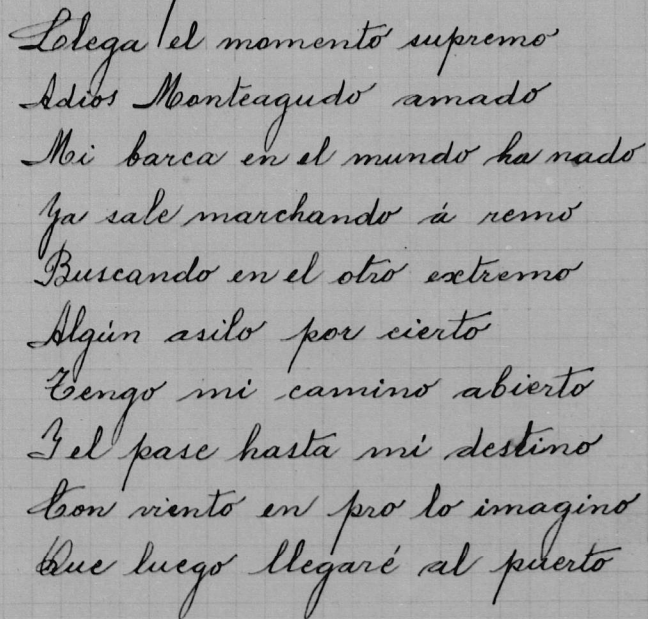 Llega el momento supremo
Adios Monteagudo amado
Mi barca en el mundo ha nado
Ya sale marchando á remo
Buscando en el otro extremo
Algún asilo por cierto
Tengo mi camino abierto
Y el pase hasta mi destino
Con viento en pro lo imagino
Que luego llegaré al puerto